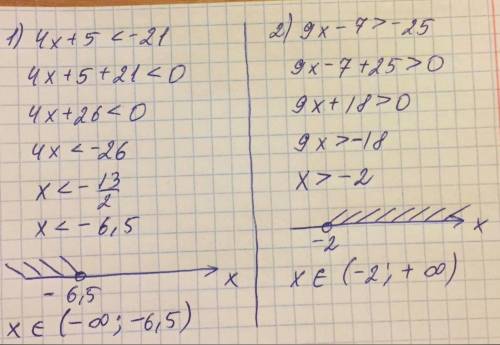 1) 4x+5 <-21
4x+5+21<0
4x+26<0
4x<-26
x<-13/2
x<-6,5
x
-6,5
x ∈ (-∞; -6,5)
2) 9x-7>-25
9x-7+25>0
9x+18>0
9x>-18
x>-2
x
-2
x ∈ (-2; +∞)